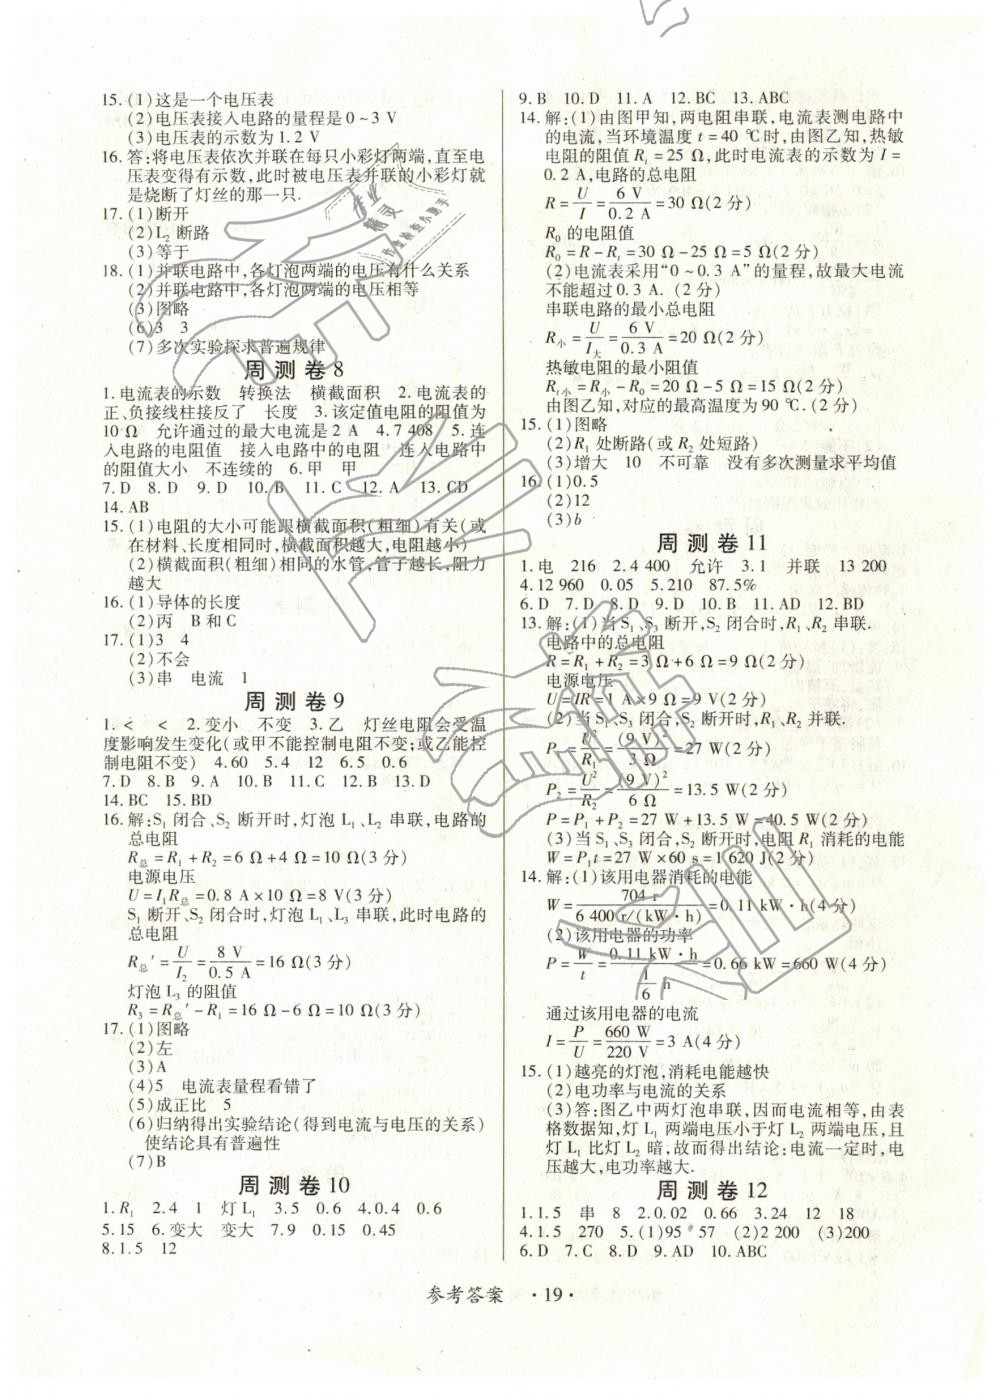 15. (1)这是一个电压表
(2)电压表接入电路的量程是 0~3 V
(3)电压表的示数为 1.2 V
16. 答:将电压表依次并联在每只小彩灯两端,直至电
压表变得有示数,此时被电压表并联的小彩灯就
是烧断了灯丝的那一只.
17. (1)断开
(2)L₂ 断路
(3)等于
18. (1)并联电路中,各灯泡两端的电压有什么关系
(2)并联电路中,各灯泡两端的电压相等
(3)图略
(6)3 3
(7)多次实验探求普遍规律
周测卷 8
1. 电流表的示数 转换法 横截面积 2. 电流表的
正、负接线柱接反了 长度 3. 该定值电阻的阻值为
10 Ω 允许通过的最大电流是 2 A 4. 7 408 5. 连
入电路的电阻值 接入电路中的电阻 连入电路中
的电阻值大小 不连续的 6. 甲 甲
7. D 8. D 9. D 10. B 11. C 12. A 13. CD
14. AB
15. (1)电阻的大小可能跟横截面积(粗细)有关(或
在材料、长度相同时,横截面积越大,电阻越小)
(2)横截面积(粗细)相同的水管,管子越长,阻力
越大
16. (1)导体的长度
(2)丙 B 和 C
17. (1)3 4
(2)不会
(3)串 电流 1
周测卷 9
1. < < 2. 变小 不变 3. 乙 灯丝电阻会受温
度影响发生变化(或甲不能控制电阻不变;或乙能控
制电阻不变) 4. 60 5. 4 12 6. 5 0.6
7. D 8. B 9. A 10. B 11. C 12. B 13. D
14. BC 15. BD
16. 解:S₁ 闭合、S₂ 断开时,灯泡 L₁、L₂ 串联,电路的
总电阻
R总=R₁+R₂=6 Ω+4 Ω=10 Ω(3 分)
电源电压
U=I₁R总=0.8 A×10 Ω=8 V(3 分)
S₁ 断开、S₂ 闭合时,灯泡 L₁、L₃ 串联,此时电路的
总电阻
R总′=U/I₂=8 V/0.5 A=16 Ω(3 分)
灯泡 L₃ 的阻值
R₃=R总′-R₁=16 Ω-6 Ω=10 Ω(3 分)
17. (1)图略
(2)左
(3)A
(4)5 电流表量程看错了
(5)成正比 5
(6)归纳得出实验结论(得到电流与电压的关系)
使结论具有普遍性
(7)B
周测卷 10
1. R₁ 2. 4 1 灯 L₁ 3. 5 0.6 4. 0.4 0.6
5. 15 6. 变大 变大 7. 9 0.15 0.45
8. 1.5 12
9. B 10. D 11. A 12. BC 13. ABC
14. 解:(1)由图甲知,两电阻串联,电流表测电路中
的电流,当环境温度 t=40 ℃时,由图乙知,热敏
电阻的阻值 Rt=25 Ω,此时电流表的示数为 I=
0.2 A,电路的总电阻
R=U/I=6 V/0.2 A=30 Ω(2 分)
R₀ 的电阻值
R₀=R-Rt=30 Ω-25 Ω=5 Ω(2 分)
(2)电流表采用“0~0.3 A”的量程,故最大电流
不能超过 0.3 A. (2 分)
串联电路的最小总电阻
R小=U/I大=6 V/0.3 A=20 Ω(2 分)
热敏电阻的最小阻值
Rt小=R小-R₀=20 Ω-5 Ω=15 Ω(2 分)
由图乙知,对应的最高温度为 90 ℃.(2 分)
15. (1)图略
(2)R₁ 处断路(或 R₂ 处短路)
(3)增大 10 不可靠 没有多次测量求平均值
16. (1)0.5
(2)12
(3)b
周测卷 11
1. 电 216 2. 4 400 允许 3. 1 并联 13 200
4. 12 960 0.05 5. 210 87.5%
6. D 7. D 8. D 9. B 10. B 11. AD 12. BD
13. 解:(1)当 S₁、S₃ 断开,S₂ 闭合时,R₁、R₂ 串联.
电路中的总电阻
R=R₁+R₂=3 Ω+6 Ω=9 Ω(2 分)
电源电压
U=IR=1 A×9 Ω=9 V(2 分)
(2)当 S₁、S₃ 闭合,S₂ 断开时,R₁、R₂ 并联.
P₁=U²/R₁=(9 V)²/3 Ω=27 W(2 分)
P₂=U²/R₂=(9 V)²/6 Ω=13.5 W(2 分)
P=P₁+P₂=27 W+13.5 W=40.5 W(2 分)
(3)当 S₁、S₃ 闭合,S₂ 断开时,电阻 R₁ 消耗的电能
W=P₁t=27 W×60 s=1 620 J(2 分)
14. 解:(1)该用电器消耗的电能
W=704 r/6 400 r/(kW·h)=0.11 kW·h(4 分)
(2)该用电器的功率
P=W/t=0.11 kW·h/(1/6 h)=0.66 kW=660 W(4 分)
通过该用电器的电流
I=P/U=660 W/220 V=3 A(4 分)
15. (1)越亮的灯泡,消耗电能越快
(2)电功率与电流的关系
(3)答:图乙中两灯泡串联,因而电流相等,由表
格数据知,灯 L₁ 两端电压小于灯 L₂ 两端电压,且
灯 L₁ 比灯 L₂ 暗,故而得出结论:电流一定时,电
压越大,电功率越大.
周测卷 12
1. 1.5 串 8 2. 0.02 0.66 3. 24 12 18
4. 1.5 270 5. (1)95 57 (2)2 200 (3)200
6. D 7. C 8. D 9. AD 10. ABC
参考答案 · 19 ·